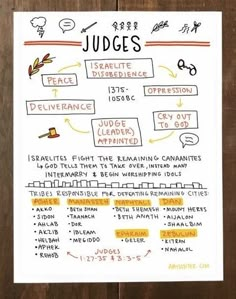 JUDGES
ISRAELITE
DISOBEDIENCE
PEACE
1375-
1050BC
OPPRESSION
DELIVERANCE
JUDGE
(LEADER)
APPOINTED
CRY OUT
TO GOD
ISRAELITES FIGHT THE REMAINING CANAANITES
GOD TELLS THEM TO TAKE OVER, INSTEAD MANY
INTERMARRY & BEGIN WORSHIPPING IDOLS
TRIBES RESPONSIBLE FOR DEFEATING REMAINING CITIES:
ASHER MANASSEH NAPHTALI DAN
• AKKO • BETH SHAN • BETH SHEMESH • MOUNT HERES
• SIDON • TAANACH • BETH ANATH • AIJALON
• AHLAB • DOR • SHAALBIM
• AKZIB • IBLEAM EPHRAIM ZEBULUN
• HELBAH • MEGIDDO • GEZER • KITRON
• APHEK • NAHALOL
• REHOB
JUDGES
1:27-35 & 3:3-5